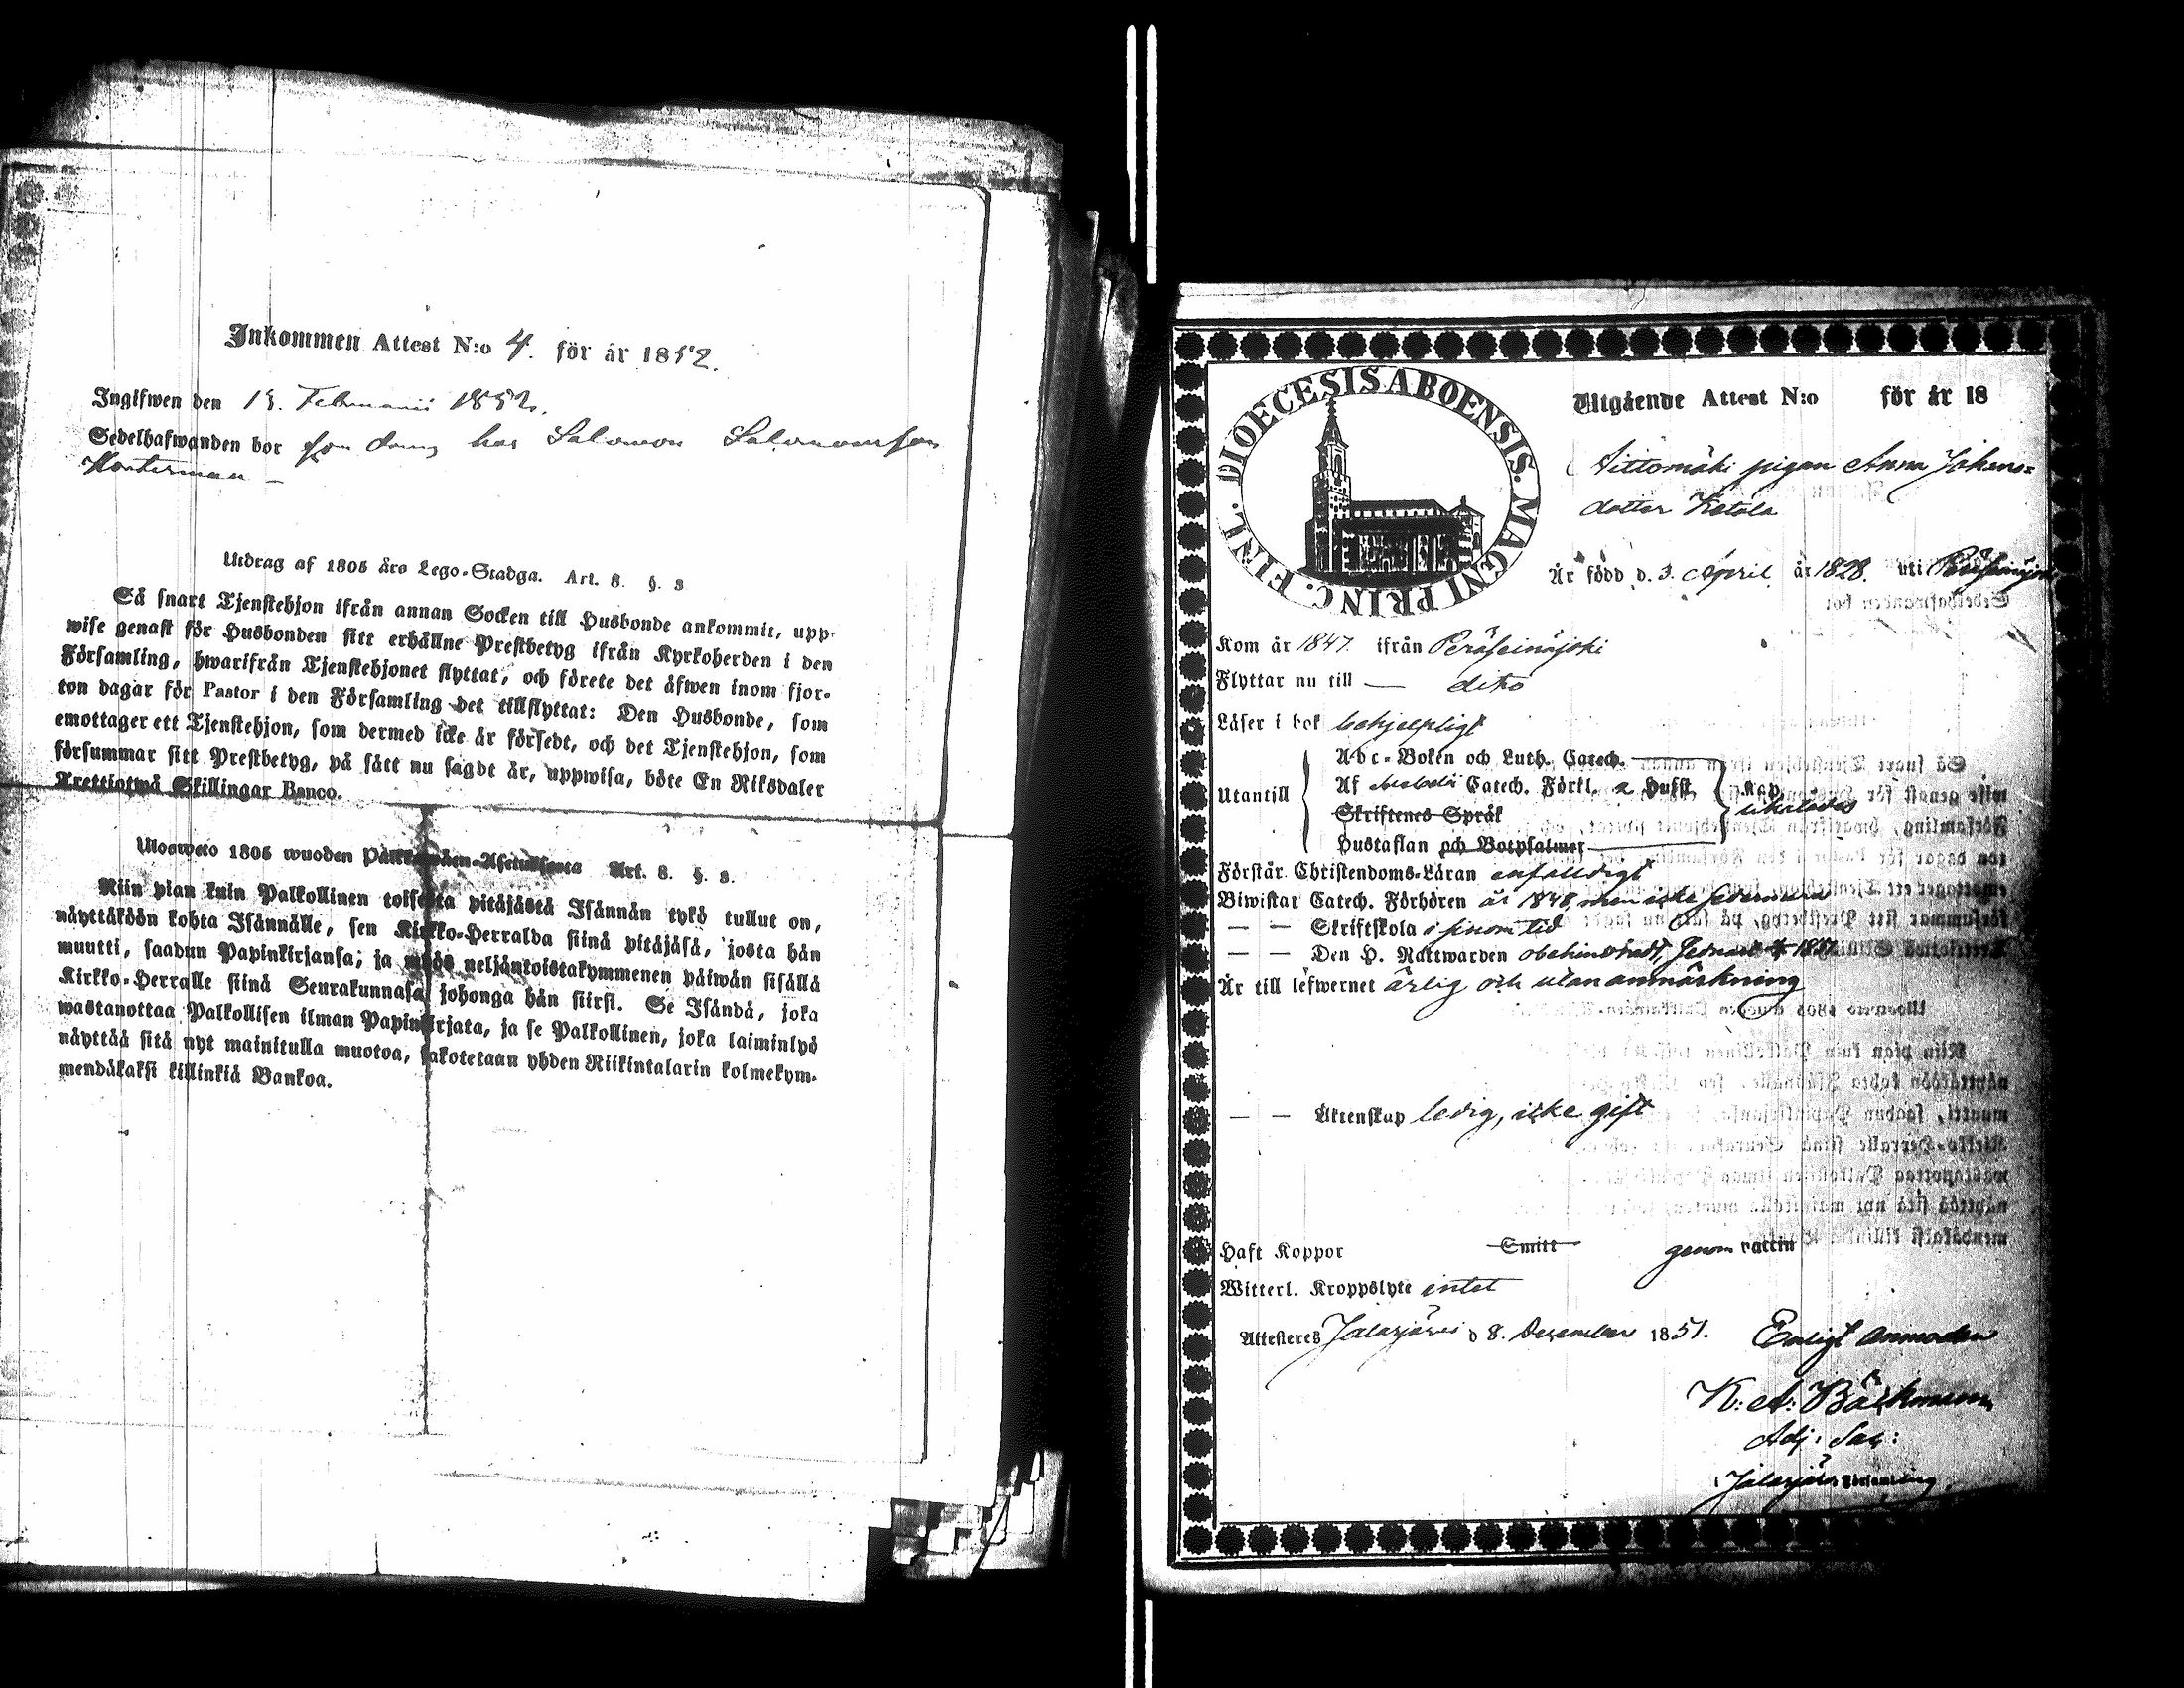 Inkommen Attest N:o 4. för år 1852.
Ingifwen den 13. Februarii 1852.
Sedelhafwanden bor hos Salomon Salomonsson
Utdrag af 1805 års Lego-Stadga. Art. 8. §. 3
Så snart Tjenstehjon ifrån annan Socken till Husbonde ankommit, upp-
wise genast för Husbonden sitt erhållne Prestbetyg ifrån Kyrkoherden i den
Församling, hwarifrån Tjenstehjonet flyttat, och förete det äfwen inom fjor-
ton dagar för Pastor i den Församling det tillflyttat: Den Husbonde, som
emottager ett Tjenstehjon, som dermed icke är försedt, och det Tjenstehjon, som
försummar sitt Prestbetyg, på sätt nu sagdt är, uppwisa, böte En Riksdaler
Trettiotwå Skillingar Banco.
Ulosweto 1805 wuoden Palkkawäen-Asetuksesta Art. 8. §. 3.
Niin pian kuin Palkollinen toisesta pitäjästä Isännän tykö tullut on,
näyttäköön kohta Isännälle, sen Kirkko-Herralda siinä pitäjäsä, josta hän
muutti, saadun Papinkirjansa; ja myös neljäntoistakymmenen päiwän sisällä
Kirkko-Herralle siinä Seurakunnasa johonga hän siirsi. Se Isändä, joka
wastanottaa Palkollisen ilman Papinkirjata, ja se Palkollinen, joka laiminlyö
näyttää sitä nyt mainitulla muotoa, sakotetaan yhden Riikintalarin kolmekym-
mendäkaksi killinkiä Bankoa.
DIOECESIS ABOENSIS. MAGNI PRINC. FINL.
Utgående Attest N:o för år 18
pigan Anna Johans-
dotter Ketola
Är född d. 3. April år 1828. uti Peräseinäjoki
Kom år 1847. ifrån Peräseinäjoki
Flyttar nu till — dito
Läser i bok behjelpligt
Utantill
Abc-Boken och Luth. Catech.
Af Catech. Förkl. 2 Hufst. Kap.
Skriftenes Språk
Hustaflan och Botpsalmer
Förstår Christendoms-Läran enfaldigt
Biwistar Catech. Förhören år 1848 men icke sedermera
— — Skriftskola i sinom tid
— — Den H. Nattwarden obehindradt,
Är till lefwernet ärlig och utan anmärkning
— — Äktenskap ledig, icke gift
Haft Koppor Smitt genom vaccin
Witterl. Kroppslyte intet
Attesteres Jalasjärvi d 8. December 1851. Enligt anmodan
K: A: Bäckman
Adj: Sac:
i Jalasjärvi Församling